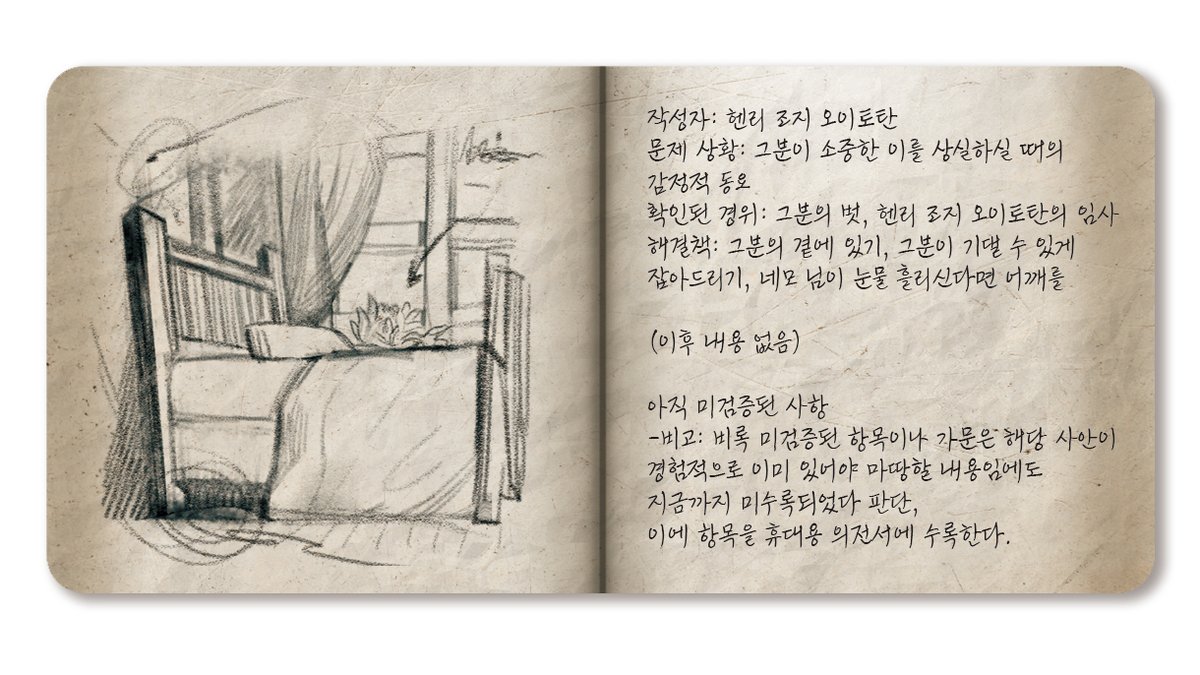 작성자: 헨리 죠지 오이토탄
문제 상황: 그분이 소중한 이를 상실하실 때의
감정적 동요
확인된 경위: 그분의 벗, 헨리 죠지 오이토탄의 임사
해결책: 그분의 곁에 있기, 그분이 기댈 수 있게
잡아드리기, 네모 님이 눈물 흘리신다면 어깨를
(이후 내용 없음)
아직 미검증된 사항
-비고: 비록 미검증된 항목이나 가문은 해당 사안이
경험적으로 이미 있어야 마땅할 내용임에도
지금까지 미수록되었다 판단,
이에 항목을 휴대용 의전서에 수록한다.